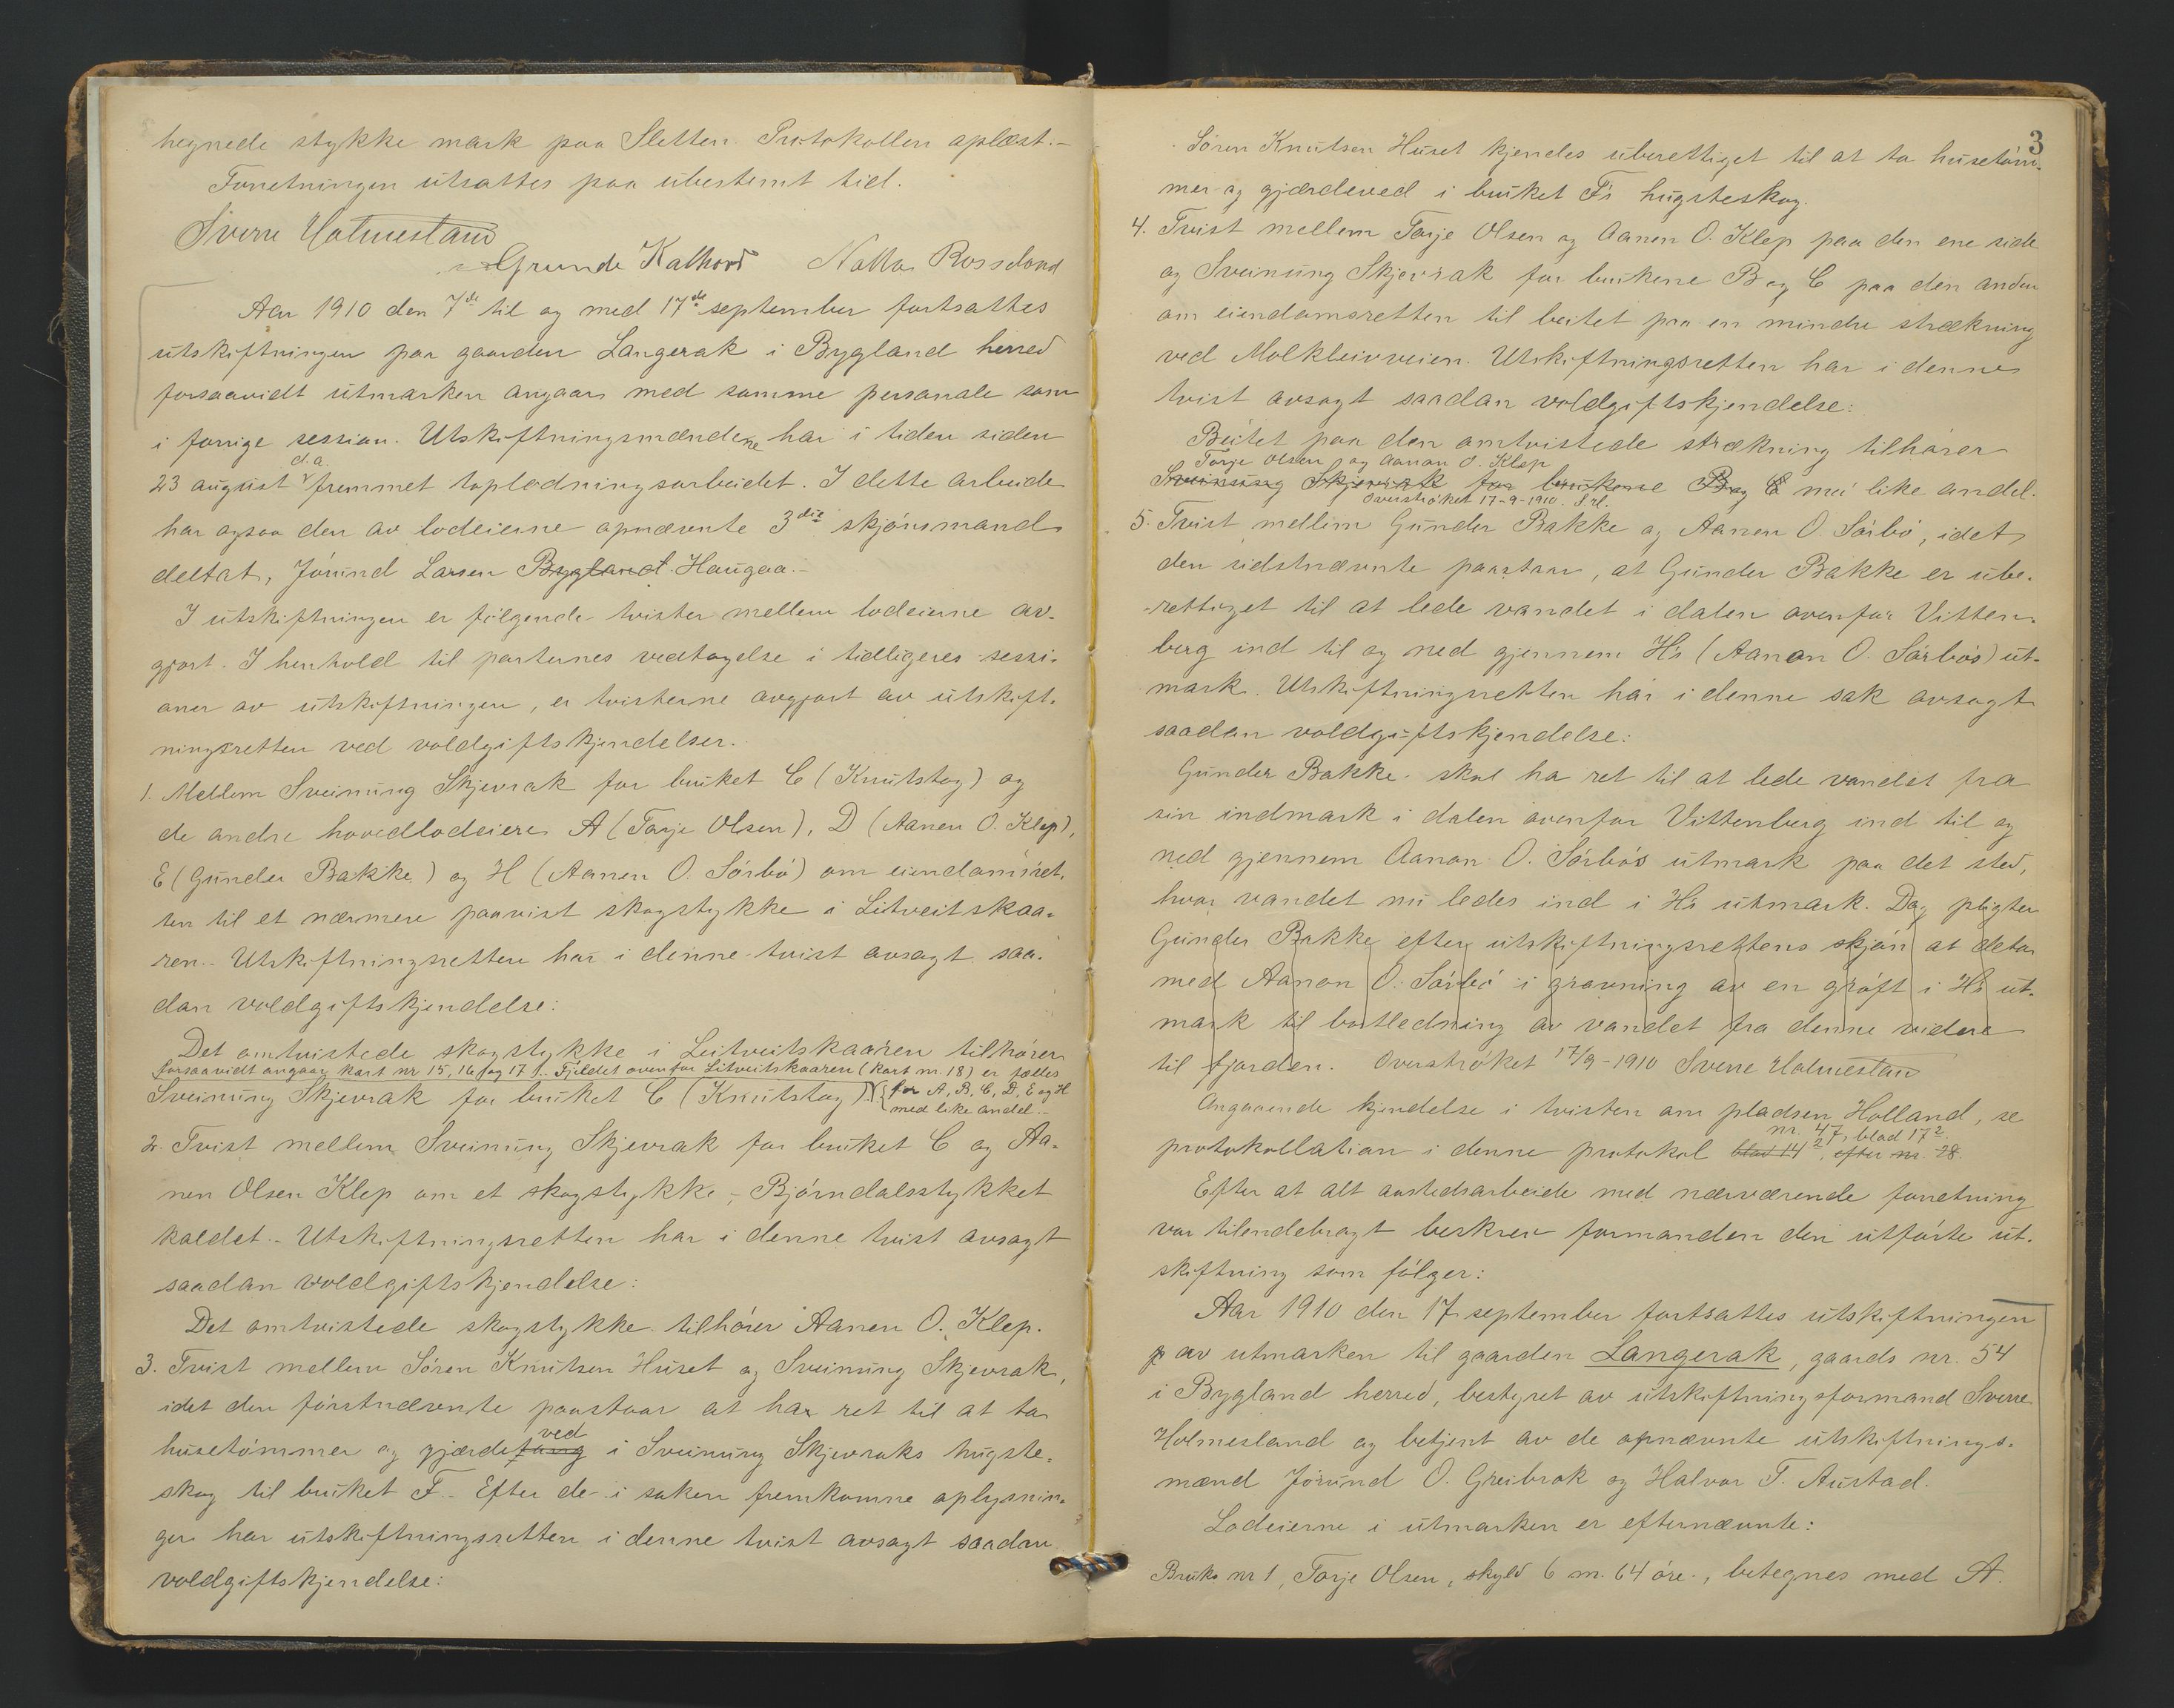 hegnede stykke mark paa Sletten. Protokollen oplæst.-
Forretningen utsattes paa ubestemt tid.
Sverre Holmesland
Grunde Kalhovd Rosseland
Aar 1910 den 7de til og med 17de september fortsattes
utskiftningen paa gaarden Langerak i Bygland herred
forsaavidt utmarken angaar med samme personale som
i forrige session. Utskiftningsmændene har i tiden siden
23 august d.a. fremmet toplodningsarbeidet. I dette arbeide
har ogsaa den av lodeierne opnævnte 3die skjønsmand
deltat, Jørund Larsen Bygland Haugaa.-
I utskiftningen er følgende tvister mellem lodeierne av-
gjort. I henhold til parternes vedtagelse i tidligeres sessi-
oner av utskiftningen, er tvisterne avgjort av utskift-
ningsretten ved voldgiftskjendelser.
1. Mellem Sveinung Skjevrak for bruket C (Knutstog) og
de andre hovedlodeiere A (Torje Olsen), D (Aanen O. Klep),
E (Gunder Bakke) og H (Aanen O. Sørbø) om eiendomsret-
ten til et nærmere paavist skogstykke i Litveitskaa-
ren.- Utskiftningsretten har i denne tvist avsagt saa-
dan voldgiftskjendelse:
Det omtvistede skogstykke i Leitveitskaaren tilhører
forsaavidt angaar kart nr 15, 16 og 17 . Fjeldet ovenfor Litveitskaaren (kart nr. 18) er fælles
Sveinung Skjevrak for bruket C (Knutstog) for A, B, C, D, E og H
med like andel.-
2. Tvist mellem Sveinung Skjevrak for bruket C og Aa-
nen Olsen Klep om et skogstykke,- Bjørndalsstykket
kaldet.- Utskiftningsretten har i denne tvist avsagt
saadan voldgiftskjendelse:
Det omtvistede skogstykke tilhører Aanen O. Klep.
3. Tvist mellem Søren Knutsen Huset og Sveinung Skjevrak,
idet den førstnævnte paastaar at har ret til at ta
ved
husetømmer og gjærdefang i Sveinung Skjevraks hugste-
skog til bruket F.- Efter de i saken fremkomne oplysnin-
ger har utskiftningsretten i denne tvist avsagt saadan
voldgiftskjendelse:
3
Søren Knutsen Huset kjendes uberettiget til at ta husetøm-
mer og gjærdeved i bruket F's hugsteskog.
4. Tvist mellem Torje Olsen og Aanen O. Klep paa den ene side
og Sveinung Skjevrak for brukene B og C paa den anden
om eiendomsretten til beitet paa en mindre strækning
ved Molkleivveien. Utskiftningsretten har i denne
tvist avsagt saadan voldgiftskjendelse:
Beitet paa den omtvistede strækning tilhører
Torje Olsen og Aanon O. Klep
Sveinung Skjevrak for brukene B og C med like andel.
Overstrøket 17-9-1910.
5. Tvist mellem Gunder Bakke og Aanen O. Sørbø, idet
den sidstnævnte paastaar, at Gunder Bakke er ube-
-rettiget til at lede vandet i dalen ovenfor Vitten-
berg ind til og ned gjennem H's (Aanon O. Sørbøs) ut-
mark. Utskiftningsretten har i denne sak avsagt
saadan voldgiftskjendelse:
Gunder Bakke skal ha ret til at lede vandet fra
sin indmark i dalen ovenfor Vittenberg ind til og
ned gjennem Aanon O. Sørbøs utmark paa det sted,
hvor vandet nu ledes ind i H's utmark. Dog pligter
Gunder Bakke efter utskiftningsrettens skjøn at delta
med Aanon O. Sørbø i gravning av en grøft i H's ut-
mark til bortledning av vandet fra denne videre
til fjorden. Overstrøket 17/9-1910 Sverre Holmesland
Angaaende kjendelse i tvisten om pladsen Holland, se
nr. 47, blad 17²
protokollation i denne protokol blad 14², efter nr 28.
Efter at alt aastedsarbeide med nærværende forretning
var tilendebragt beskrev formanden den utførte ut-
skiftning som følger:
Aar 1910 den 17 september fortsattes utskiftningen
p av utmarken til gaarden Langerak, gaards nr. 54
i Bygland herred, bestyret av utskiftningsformand Sverre
Holmesland og betjent av de opnævnte utskiftnings-
mænd Jørund O. Greibrok og Halvor T. Austad.
Lodeierne i utmarken er efternævnte:
Bruks nr 1, Torje Olsen, skyld 6 m. 64 øre., betegnes med A.